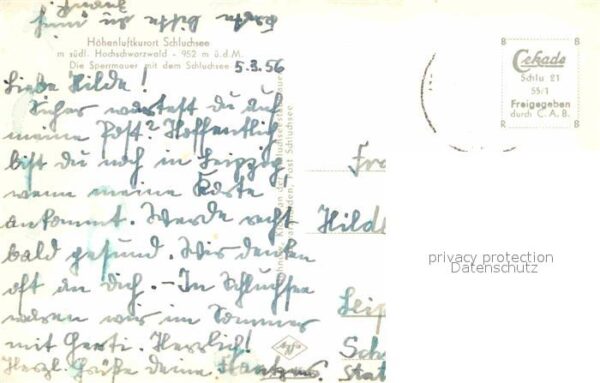 Höhenluftkurort Schluchsee
im südl. Hochschwarzwald - 952 m ü.d.M.
Die Sperrmauer mit dem Schluchsee
5.3.56
Liebe Hilde!
Sicher wartest du auf
meine Post? Hoffentlich
bist du noch in Leipzig
wenn meine Karte
ankommt. Werde recht
bald gesund. Wir denken
oft an Dich. - In Schluchsee
waren wir im Sommer
mit Gerti. Herrlich!
Herzl. Grüße deine
Cekade
Schlu 21
55/1
Freigegeben
durch C.A.B.
B B
R B
Post Schluchsee
Fr
Hilde
Leip
Sch
Stat
privacy protection
Datenschutz
Agfa